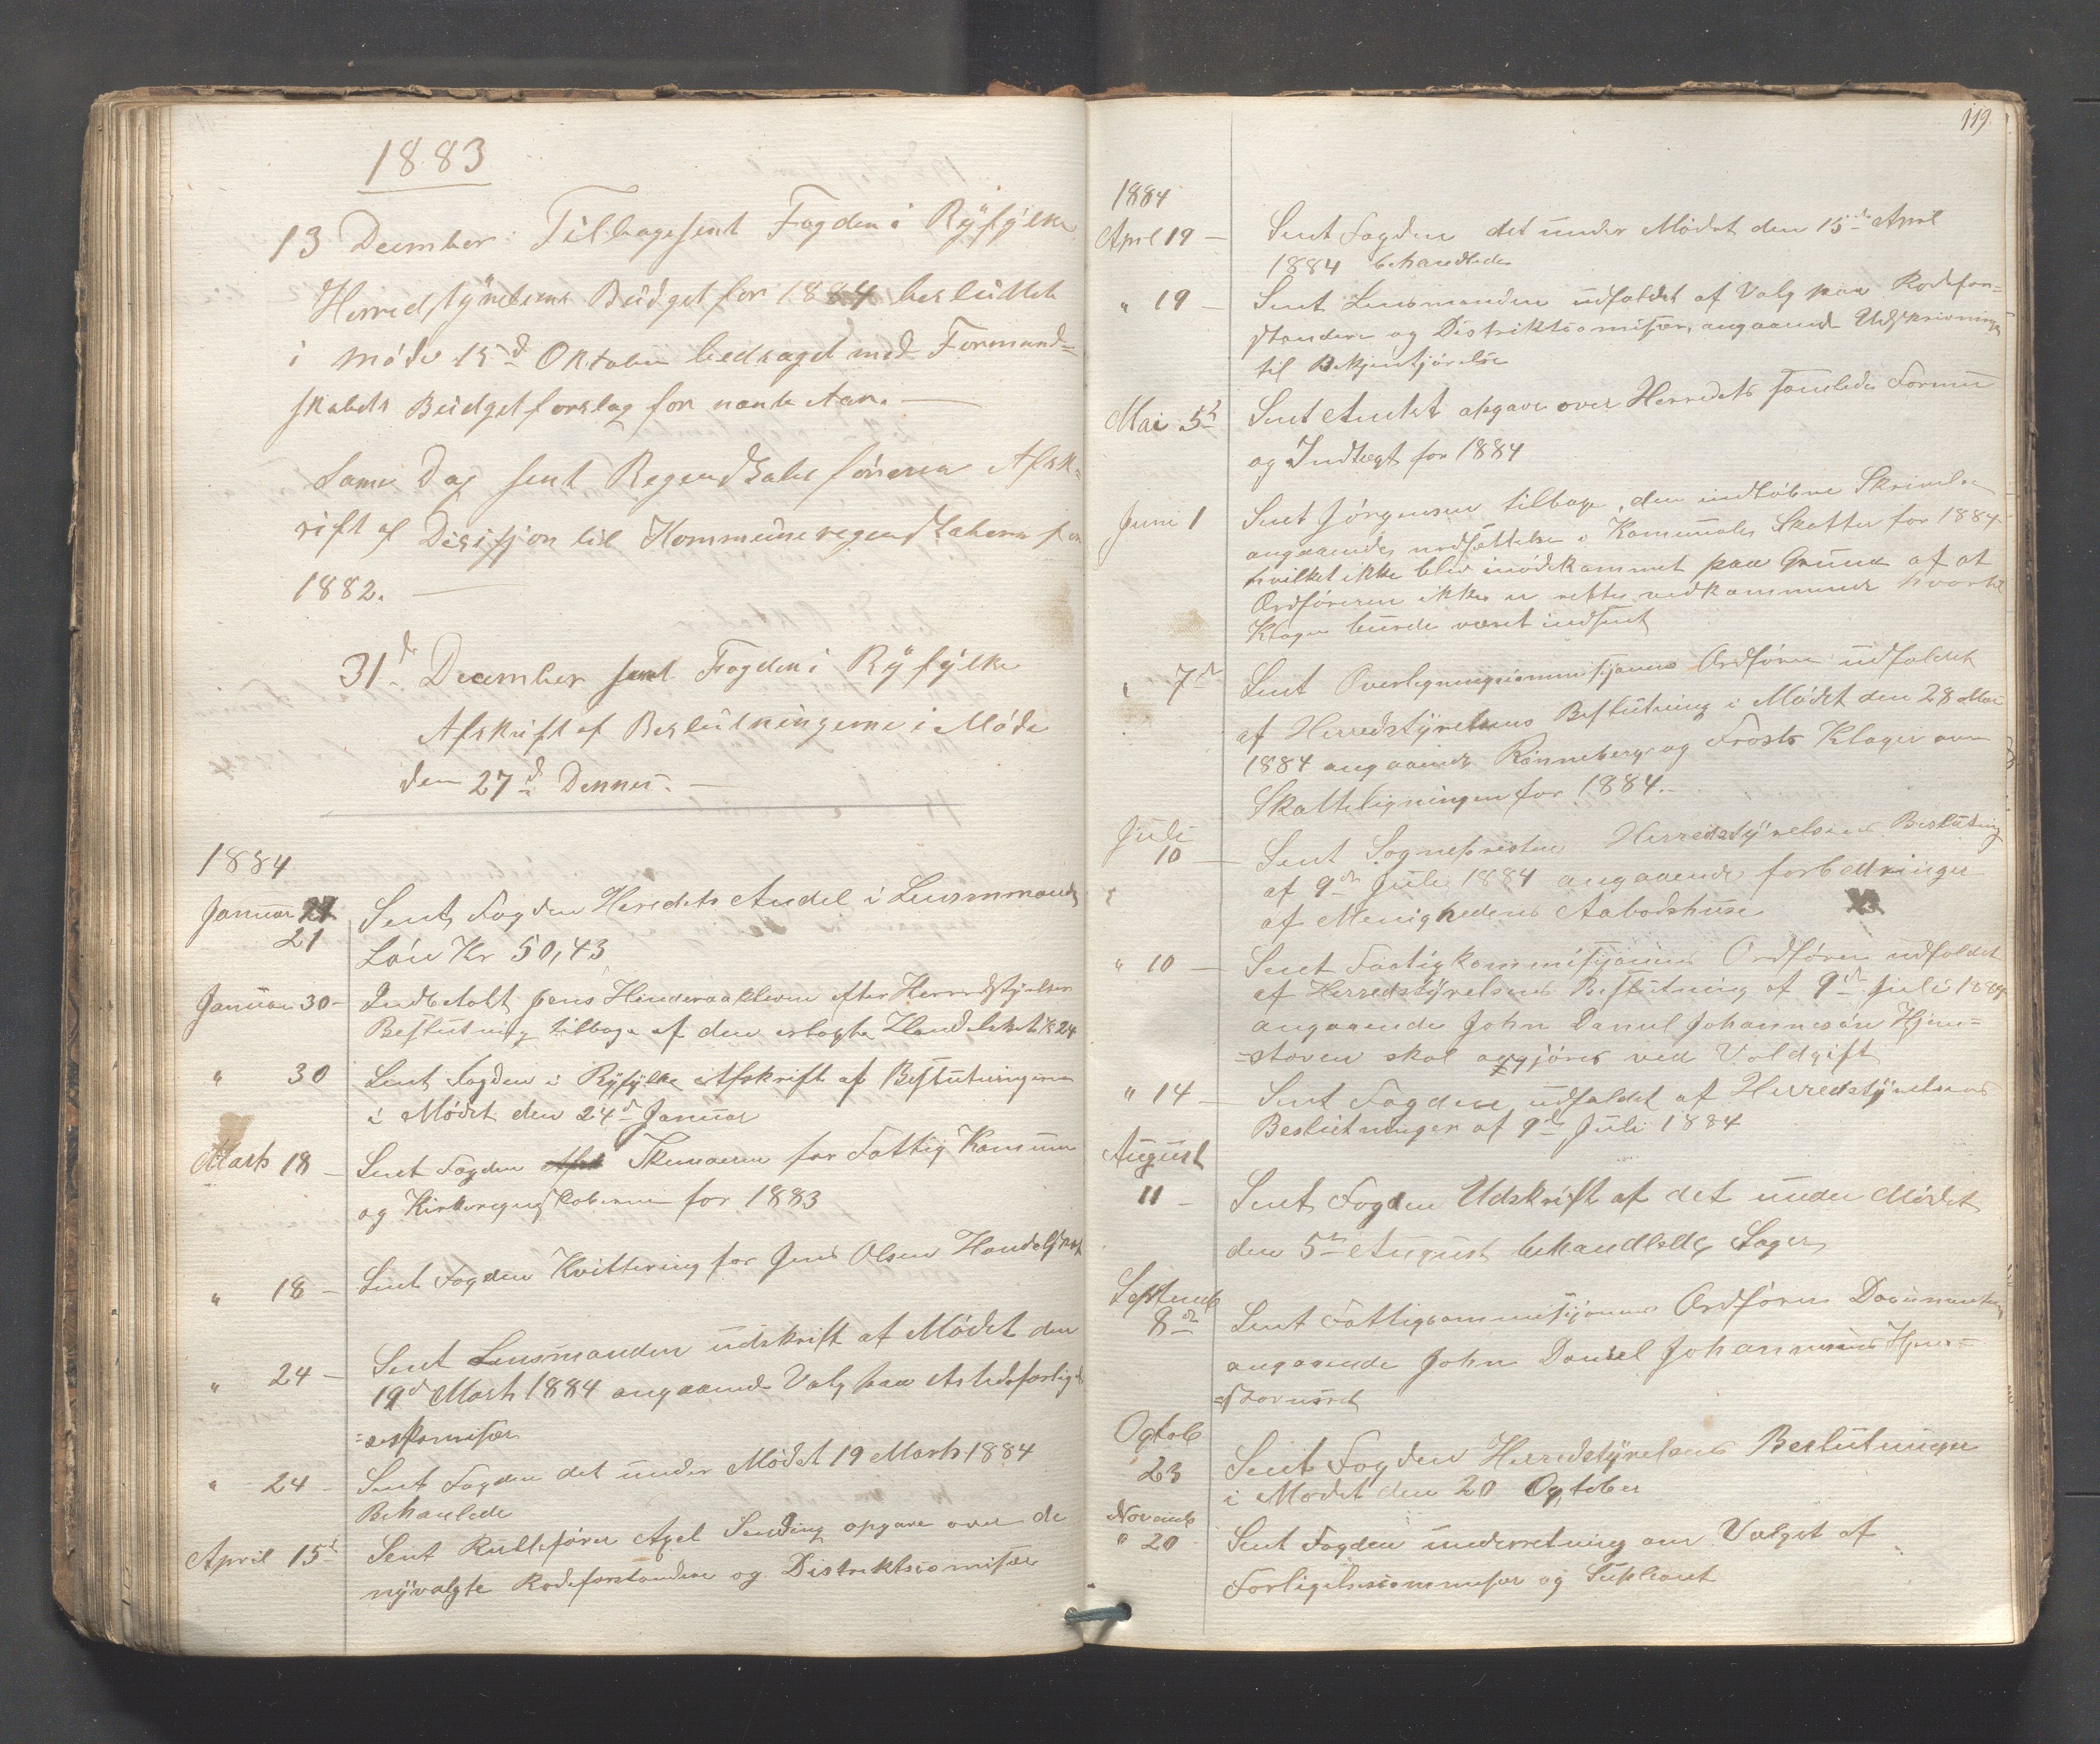 1883
13 December Tilbagesent Fogden i Ryfylke
Herredstyrelsens Budget for 1884 besluttet
i Møde 15d Oktober ledsaget med Formand=
skabets Budgetforslag for nævnte Aar. —
Same Dag sent Regendskabsføreren Afsk=
rift af Desisjon til Kommuneregendskaberne for
1882. —
31d December sent Fogden i Ryfylke
Afskrift af Beslutningerne i Møde
den 27d Dennes. —
1884
Januar
21
Sent Fogden Heredets Andel i Lensmmands
Løn Kr 50,43
Januar 30 -
Indbetalt Jens Hinderaakleven efter Herredstyrelsen
Beslutning tilbage af den erlagte Handelskat Kr 24
" 30
Sent Fogden i Ryfylke Afskrift af Beslutningerne
i Mødet den 24d Januar
Marts 18 -
Sent Fogden Skemaerne for Fattig Komune
og Kirkeregnskaberne for 1883
" 18 -
Sent Fogden Kvittering for Jens Olsen Handelskat
" 24 -
Sent Lensmanden udskrift af Mødet den
19d Marts 1884 angaaende Valg paa
" 24 -
Sent Fogden det under Mødet 19 Marts 1884
Behanlede
April 15d
Sent Rullefører Axel Sending opgave over de
nyvalgte Rodeforstandere og Distriktscomisær
119
1884
Aprl 19 —
Sent Fogden det under Mødet den 15de April
1884 behandlede
" 19 —
Sent Lensmanden udfaldet af Valg paa Rodefor=
standere og Distriktscomisær, angaaende Udskrivninge
til Bekjentjørelse
Mai 5t
Sent Amtet opgave over Herredets samlede Formu
og Indtægt for 1884
Juni 1
Sent Jørgensen tilbage, den indløbne Skrivelse
angaaende nedsættelse i Komunale Skatter for 1884
hvilket ikke blev imødekommet paa Grund af at
Ordføreren ikke er rette vedkommende hvortil
Klagen burde været indsent
" 7de
Sent Overlegningscommisjonens Ordfører udfaldet
af Herredstyrelsens Beslutning i Mødet den 28 Mai
1884 angaaende Rønneberg og Frosts Klager over
Skatteligningen for 1884. -
Juli
10 —
Sent Sognepresten Herredstyrelsens Beslutning
af 9de Juli 1884 angaaende forbedringer
af Menighedens Aabodshuse
" 10 —
Sent Fattigkommisjonens Ordfører udfaldet
af Herredstyrelsens Beslutning af 9de Juli 1884
angaaende John Daniel Johannesøn Hjem=
=stavn skal avgjøres ved Voldgift
" 14 —
Sent Fogden udfaldet af Herredstyrelsens
Beslutninger af 9de Juli 1884
August
11 -
Sent Fogden Udskrift af det under Mødet
den 5te August behandlede Sager
Septemb
8de
Sent Fattigcommisjonens Ordfører Documenterne
angaaende John Daniel Johannesens Hjem=
=stavnsret
Ogtob
23
Sent Fogden Herredstyrelsens Beslutninger
i Mødet den 20 Ogtober
Novemb
" 20
Sent Fogden underretning om Valget af
Forligelsescommisær og Supleant